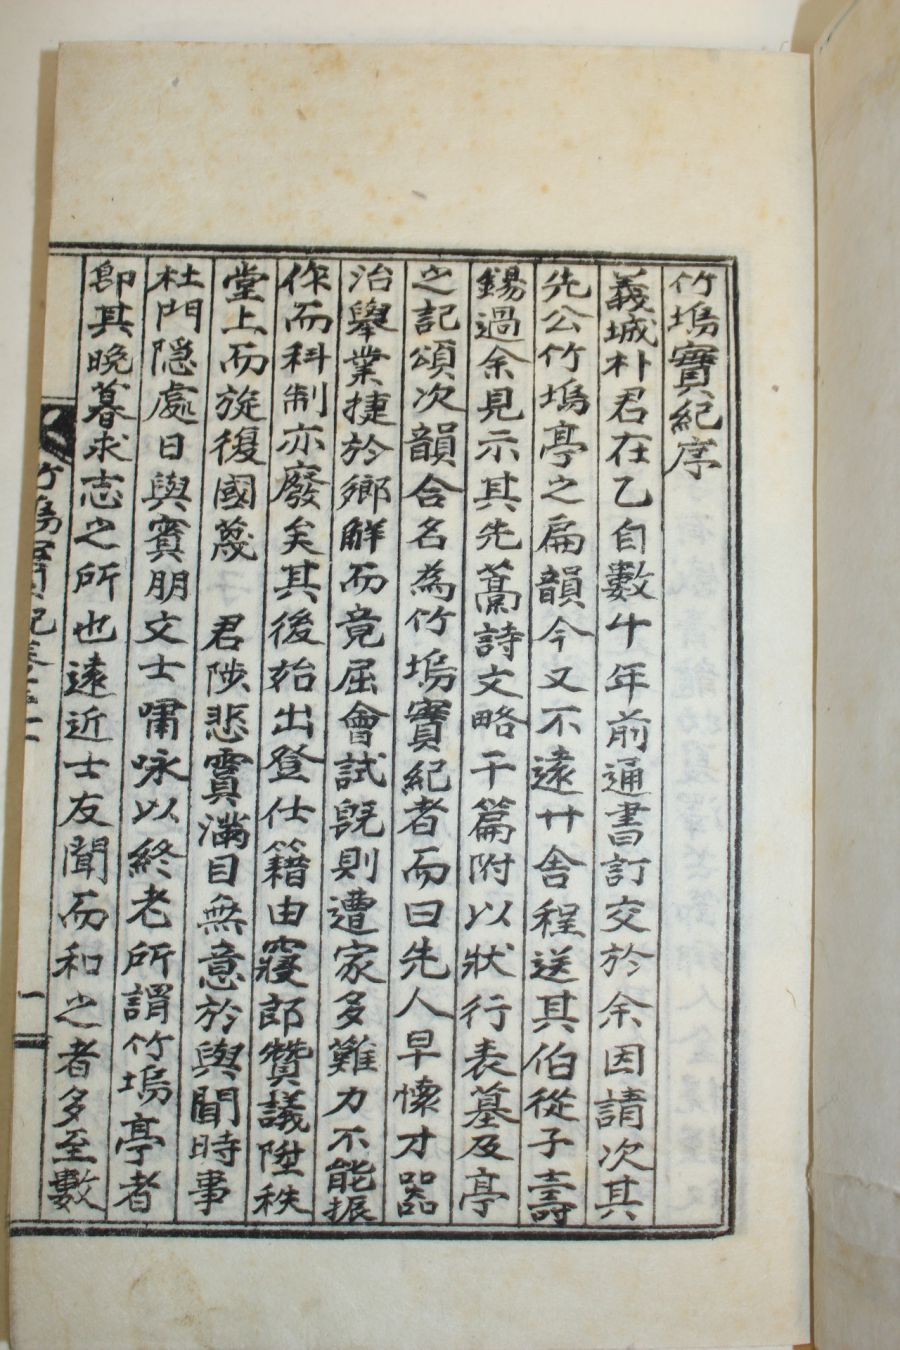 竹塢實紀序
義城朴君在乙自數十年前通書訂交於余因請次其
先公竹塢亭之扁韻今又不遠廿舍程送其伯從子壽
錫過余見示其先蒿詩文略干篇附以狀行表墓及亭
之記頌次韻合名為竹塢實紀者而曰先人早懷才器
治舉業捷於鄉解而竟屈會試旣則遭家多難力不能振
作而科制亦廢矣其後始出登仕籍由寢郎贊議陞秩
堂上而旋復國蔑 君陟悲霣滿目無意於與聞時事
杜門隱處日與賓朋文士嘯咏以終老所謂竹塢亭者
卽其晩暮求志之所也遠近士友聞而和之者多至數
竹塢實紀卷之一
一